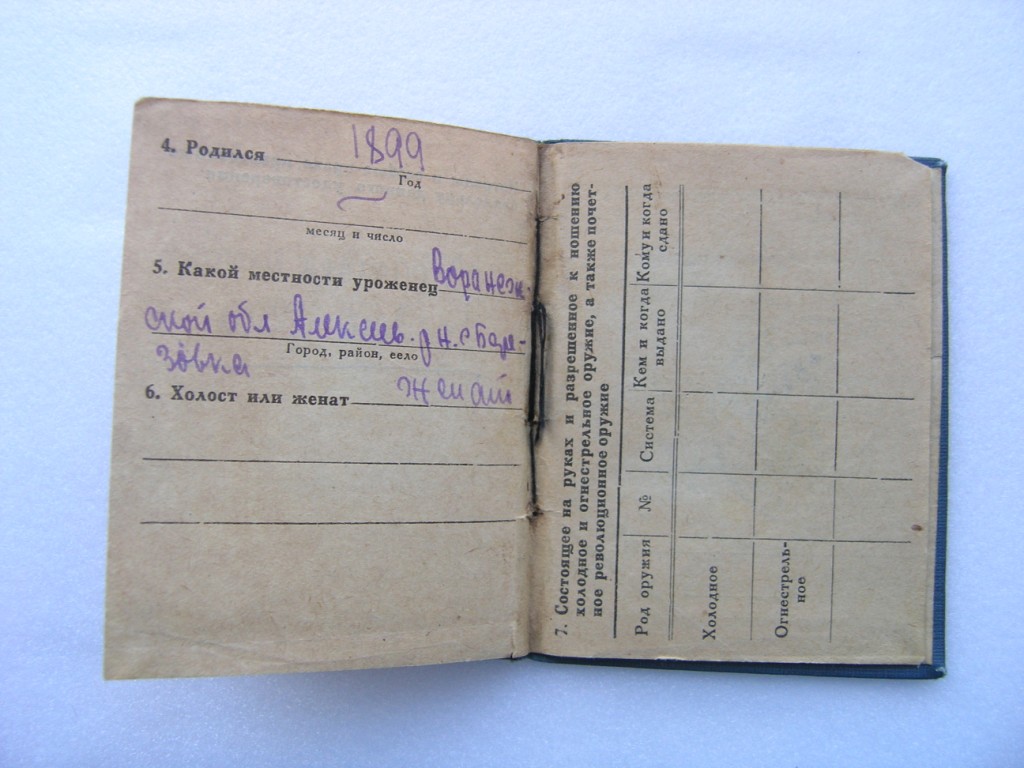 4. Родился 1899
Год
месяц и число
5. Какой местности уроженец Воранеж-
ской обл Алексеев. р н. с Бере-
Город, район, село
зовка
6. Холост или женат женат
7. Состоящее на руках и разрешенное к ношению
холодное и огнестрельное оружие, а также почет-
ное революционное оружие
Род оружия № Система Кем и когда выдано Кому и когда сдано
Холодное
Огнестрель-
ное